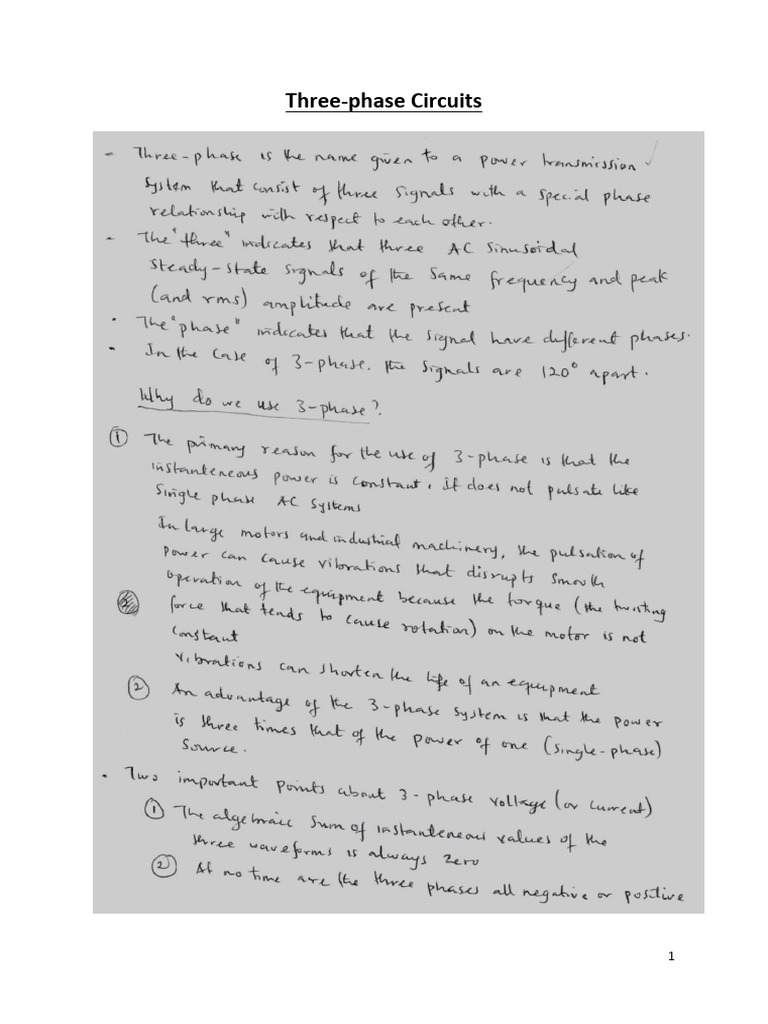 Three-phase Circuits
- Three-phase is the name given to a power transmission
system that consist of three signals with a special phase
relationship with respect to each other.
- The "three" indicates that three AC sinusoidal
steady-state signals of the same frequency and peak
(and rms) amplitude are present
• The "phase" indicates that the signal have different phases.
- In the case of 3-phase, the signals are 120° apart.
Why do we use 3-phase?
① The primary reason for the use of 3-phase is that the
instanteneous power is constant. It does not pulsate like
single phase AC systems
In large motors and industrial machinery, the pulsation of
power can cause vibrations that disrupts smooth
operation of the equipment because the torque (the twisting
force that tends to cause rotation) on the motor is not
constant
vibrations can shorten the life of an equipment
② An advantage of the 3-phase system is that the power
is three times that of the power of one (single-phase)
source.
• Two important points about 3-phase voltage (or current)
① The algebraic sum of instanteneous values of the
three waveforms is always zero
② At no time are the three phases all negative or positive
1